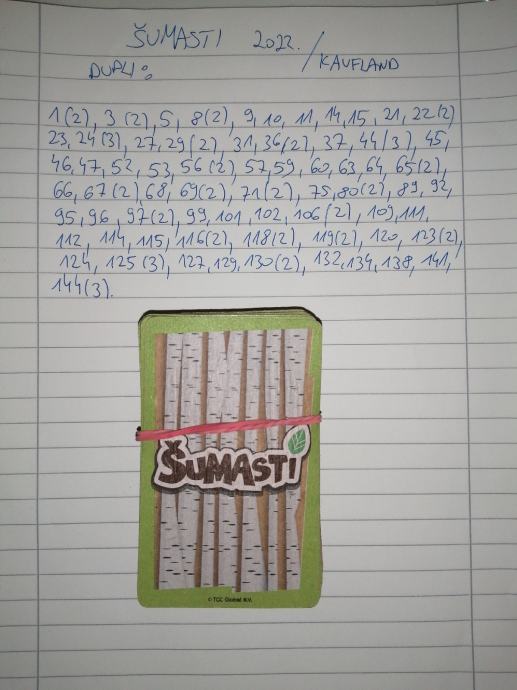 ŠUMASTI 2022. / KAUFLAND
DUPLI:
1(2), 3(2), 5, 8(2), 9, 10, 11, 14, 15, 21, 22(2)
23, 24(3), 27, 29(2), 31, 36(2), 37, 44(3), 45,
46, 47, 52, 53, 56(2), 57, 59, 60, 63, 64, 65(2),
66, 67(2), 68, 69(2), 71(2), 75, 80(2), 89, 92,
95, 96, 97(2), 99, 101, 102, 106(2), 109, 111,
112, 114, 115, 116(2), 118(2), 119(2), 120, 123(2),
124, 125(3), 127, 129, 130(2), 132, 134, 138, 141,
144(3).
ŠUMASTI
© TCC Global N.V.